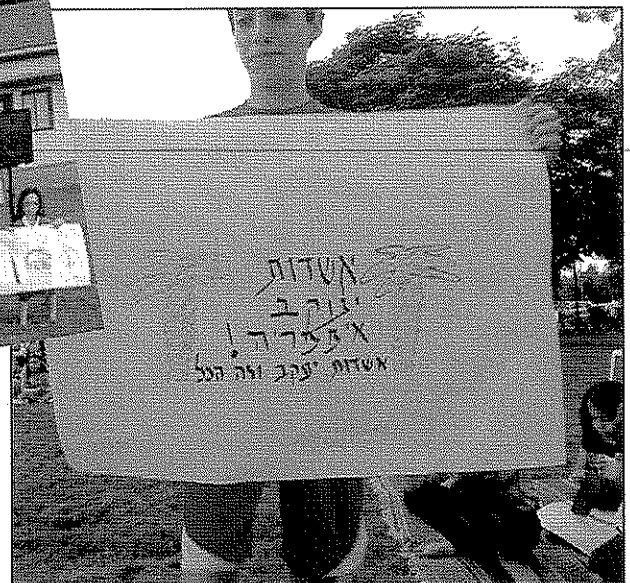 אשדות
יעקב
אשדות יעקב וזה הכל